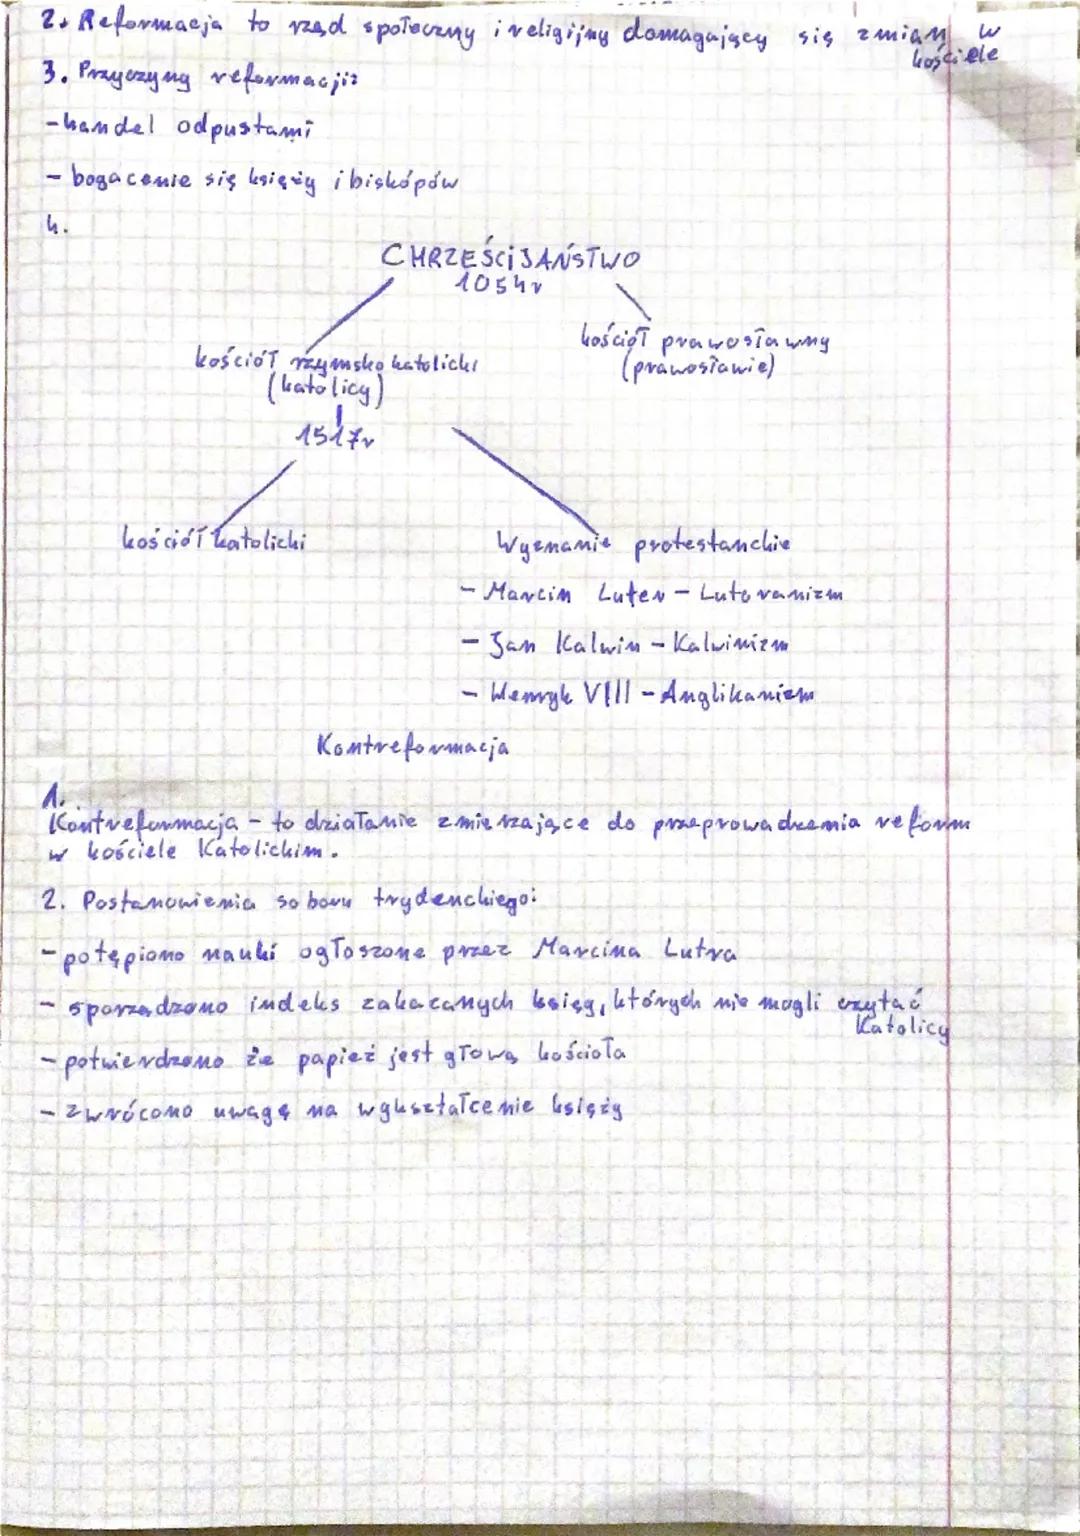 2. Reformacja to rząd społeczny i religijny domagający się zmian w
kościele
3. Przyczyny reformacji:
- handel odpustami
- bogacenie się księży i biskópów
4.
CHRZEŚCIJAŃSTWO
1054r
kościół prawosławny
(prawosławie)
kościół rzymsko katolicki
(katolicy)
1517r
kościół katolicki
Wyznanie protestanckie
- Marcin Luter - Luteranizm
- Jan Kalwin - Kalwinizm
- Henryk VIII - Anglikanizm
Kontreformacja
1.
Kontreformacja - to działanie zmierzające do przeprowadzenia reform
w kościele Katolickim.
2. Postanowienia soboru trydenckiego:
- potępiono nauki ogłoszone przez Marcina Lutra
- sporządzono indeks zakazanych ksiąg, których nie mogli czytać
Katolicy
- potwierdzono że papież jest głową kościoła
- zwrócono uwagę na wykształcenie księży